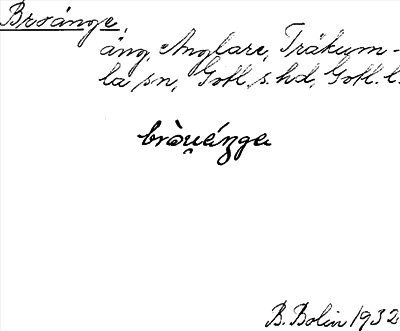 Broänge,
äng, Anglare, Träkum-
la sn, Gotl. s. hd, Gotl. l.
bròu̯áŋga
B. Bolin 1932